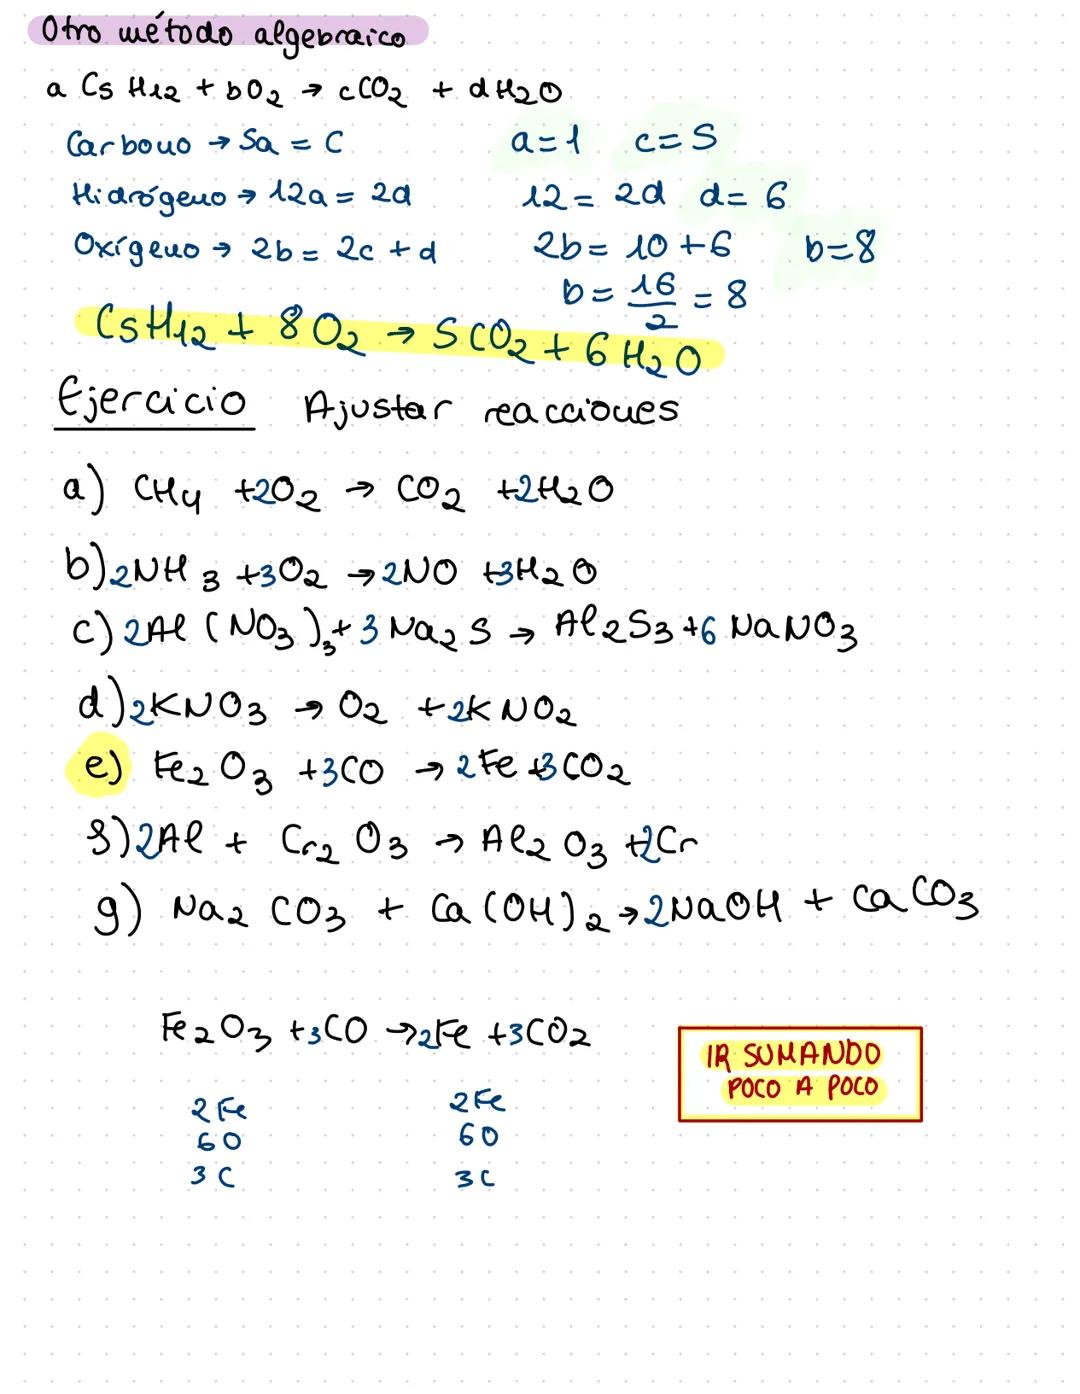 Otro método algebraico
a C5 H12 + bO2 → cCO2 + dH2O
Carbono → 5a = C a=1 c=5
Hidrógeno → 12a = 2d 12 = 2d d= 6
Oxígeno → 2b = 2c + d 2b = 10 +6 b=8
b = 16/2 = 8
C5H12 + 8 O2 → 5 CO2 + 6 H2O
Ejercicio Ajustar reacciones
a) CH4 +2O2 → CO2 +2H2O
b) 2NH3 +3O2 → 2NO +3H2O
c) 2Al (NO3)3 + 3 Na2 S → Al2S3 +6 NaNO3
d) 2KNO3 → O2 +2KNO2
e) Fe2 O3 +3CO → 2Fe +3CO2
f) 2Al + Cr2 O3 → Al2 O3 +2Cr
g) Na2 CO3 + Ca(OH)2 → 2NaOH + CaCO3
Fe2O3 +3CO → 2Fe +3CO2
IR SUMANDO
POCO A POCO
2 Fe 2 Fe
6 O 6 O
3 C 3 C